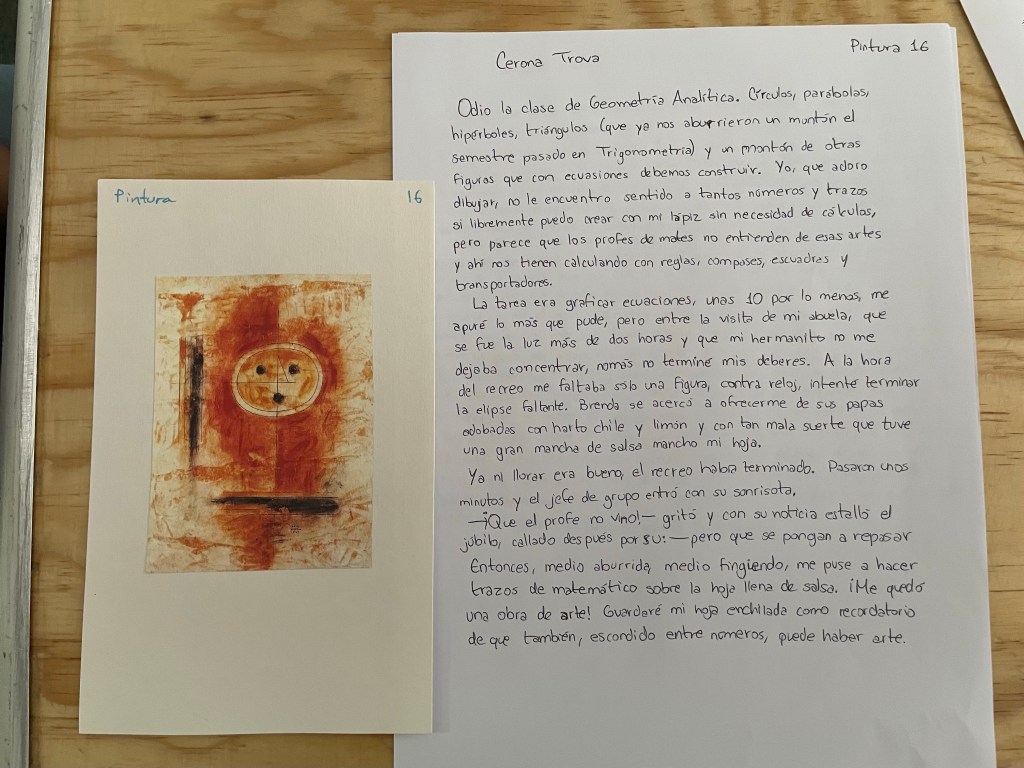 Pintura 16
Cerona Trova
Pintura 16
Odio la clase de Geometría Analítica. Círculos, parábolas,
hipérboles, triángulos (que ya nos aburrieron un montón el
semestre pasado en Trigonometría) y un montón de otras
figuras que con ecuasiones debemos construir. Yo, que adoro
dibujar, no le encuentro sentido a tantos números y trazos
si libremente puedo crear con mi lápiz sin necesidad de cálculos,
pero parece que los profes de mates no entienden de esas artes
y ahí nos tienen calculando con reglas, compases, escuadras y
transportadores.
La tarea era graficar ecuaciones, unas 10 por lo menos, me
apuré lo más que pude, pero entre la visita de mi abuela, que
se fue la luz más de dos horas y que mi hermanito no me
dejaba concentrar, nomás no terminé mis deberes. A la hora
del recreo me faltaba solo una figura, contra reloj, intenté terminar
la elipse faltante. Brenda se acercó a ofrecerme de sus papas
adobadas con harto chile y limón y con tan mala suerte que tuve
una gran mancha de salsa mancho mi hoja.
Ya ni llorar era bueno, el recreo había terminado. Pasaron unos
minutos y el jefe de grupo entró con su sonrisota.
—¡Que el profe no vino!— gritó y con su noticia estalló el
júbilo, callado después por su: —pero que se pongan a repasar
Entonces, medio aburrida, medio fingiendo, me puse a hacer
trazos de matemático sobre la hoja llena de salsa. ¡Me quedó
una obra de arte! Guardaré mi hoja enchilada como recordatorio
de que también, escondido entre números, puede haber arte.